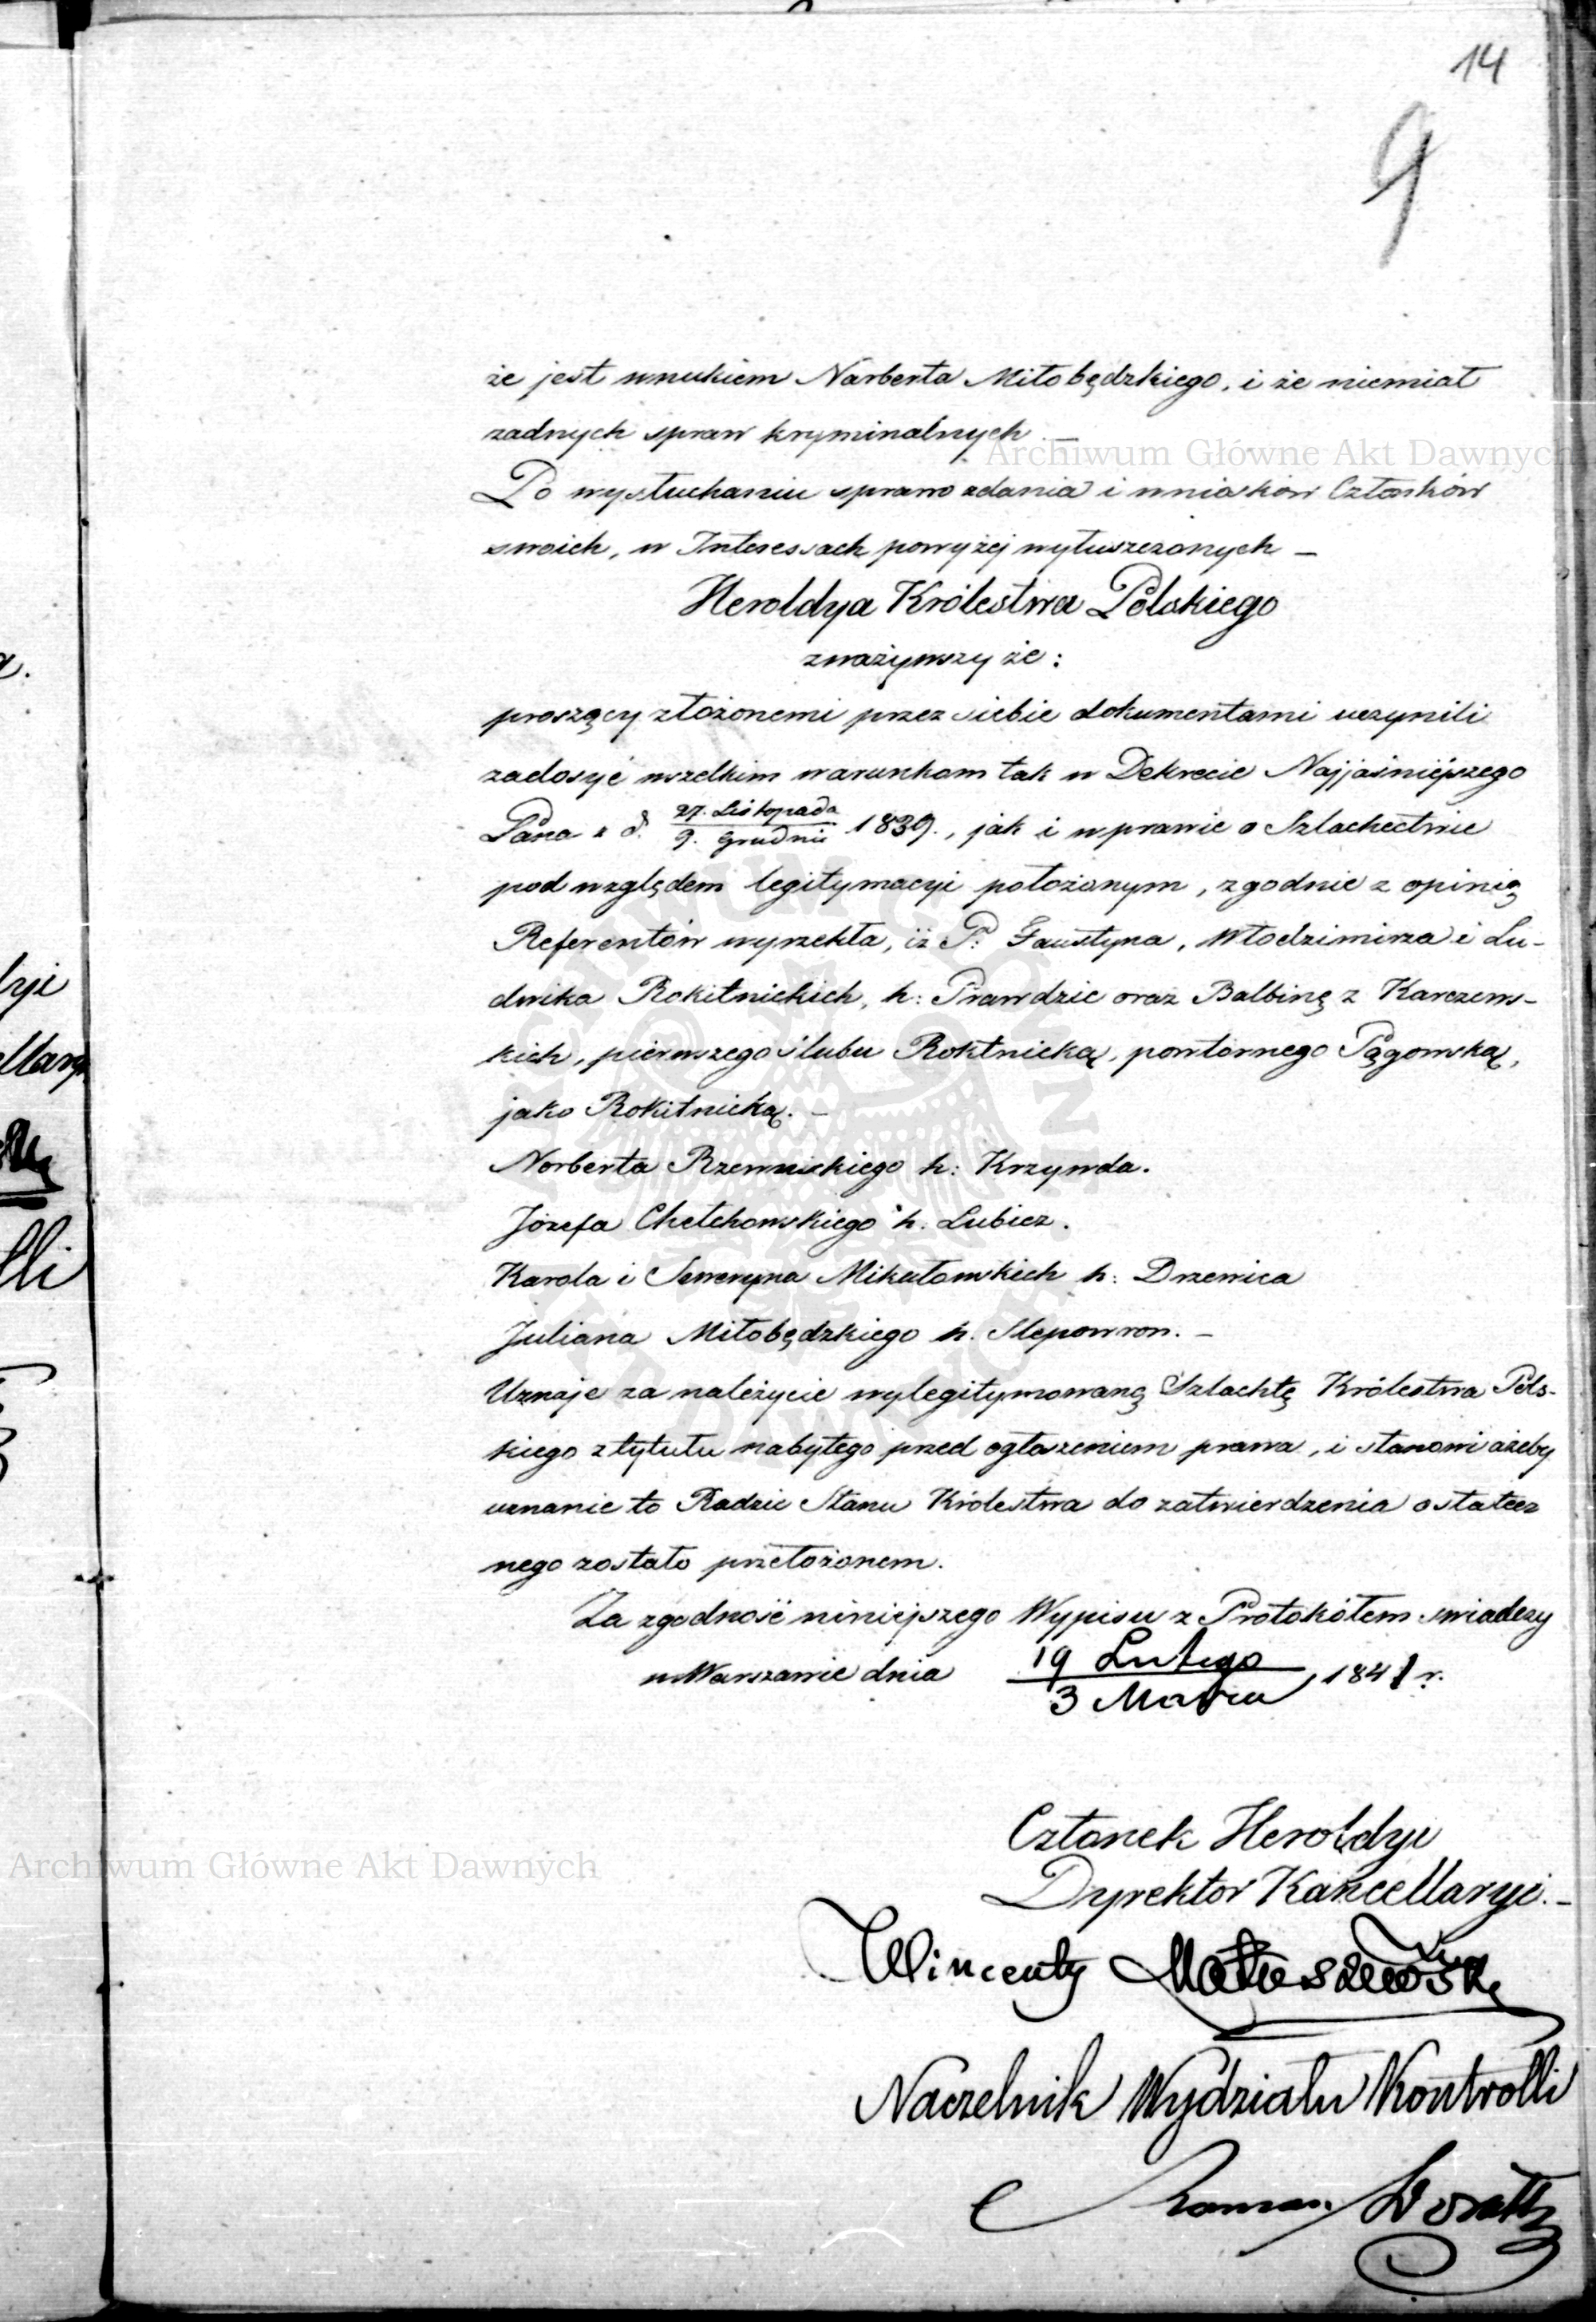 14
9
że jest wnukiem Norberta Miłobędzkiego, i że niemiał
żadnych spraw kryminalnych. —
Archiwum Główne Akt Dawnych
Po wysłuchaniu sprawozdania i wniosków Członków
swoich, w Interessach powyżej wyłuszczonych —
Heroldya Królestwa Polskiego
zważywszy że:
proszący złożonemi przez siebie dokumentami uczynili
zadosyć wszelkim warunkom tak w Dekrecie Najjaśniejszego
Pana z d. 27. Listopada / 9. Grudnia 1839., jak i w prawie o Szlachectwie
pod względem legitymacyi położonym, zgodnie z opinią
Referentów wyrzekła, iż P: Faustyna, Włodzimirza i Lu-
dwika Rokitnickich, h: Prawdzic oraz Balbinę z Karczews-
kich, pierwszego ślubu Roktnicką, powtórnego Pągowską,
jako Rokitnicką. —
Norberta Rzewnickiego h: Krzywda.
Józefa Chełchowskiego h. Lubicz.
Karola i Seweryna Mikułowskich h: Drzewica
Juliana Miłobędzkiego h. Slepowron. —
Uznaje za należycie wylegitymowaną Szlachtę Królestwa Pols-
kiego z tytułu nabytego przed ogłoszeniem prawa, i stanowi ażeby
uznanie to Radzie Stanu Królestwa do zatwierdzenia ostatecz
nego zostało przełożonem.
Za zgodność niniejszego Wypisu z Protokółem swiadczy
w Warszawie dnia 19 Lutego / 3 Marca 1841 r.
Członek Heroldyi
Archiwum Główne Akt Dawnych
Dyrektor Kancellaryi. —
Wincenty Matuszewski
Naczelnik Wydziału Kontrolli
Roman